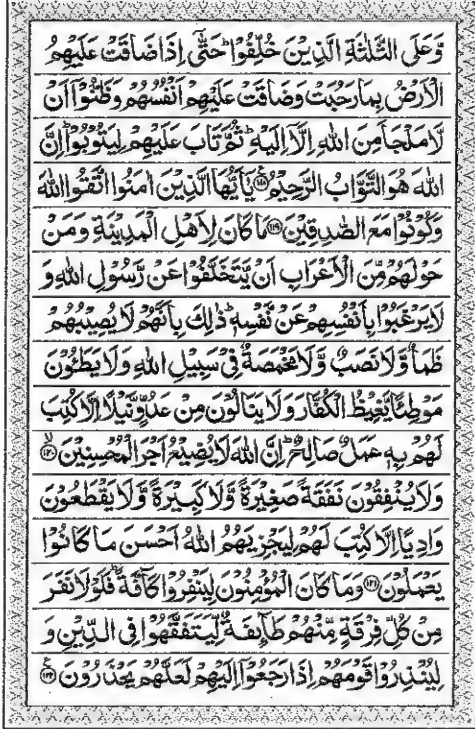 وَّعَلَى الثَّلٰثَةِ الَّذِيْنَ خُلِّفُوْا ؕ حَتّٰۤى اِذَا ضَاقَتْ عَلَيْهِمُ
الْاَرْضُ بِمَا رَحُبَتْ وَضَاقَتْ عَلَيْهِمْ اَنْفُسُهُمْ وَظَنُّوْۤا اَنْ
لَّا مَلْجَاَ مِنَ اللّٰهِ اِلَّاۤ اِلَيْهِ ؕ ثُمَّ تَابَ عَلَيْهِمْ لِيَتُوْبُوْا ؕ اِنَّ
اللّٰهَ هُوَ التَّوَّابُ الرَّحِيْمُ ﴿۱۱۸﴾ يٰۤاَيُّهَا الَّذِيْنَ اٰمَنُوا اتَّقُوا اللّٰهَ
وَكُوْنُوْا مَعَ الصّٰدِقِيْنَ ﴿۱۱۹﴾ مَا كَانَ لِاَهْلِ الْمَدِيْنَةِ وَمَنْ
حَوْلَهُمْ مِّنَ الْاَعْرَابِ اَنْ يَّتَخَلَّفُوْا عَنْ رَّسُوْلِ اللّٰهِ وَ
لَا يَرْغَبُوْا بِاَنْفُسِهِمْ عَنْ نَّفْسِهٖ ؕ ذٰلِكَ بِاَنَّهُمْ لَا يُصِيْبُهُمْ
ظَمَاٌ وَّلَا نَصَبٌ وَّلَا مَخْمَصَةٌ فِيْ سَبِيْلِ اللّٰهِ وَلَا يَطَـُٔوْنَ
مَوْطِئًا يَّغِيْظُ الْكُفَّارَ وَلَا يَنَالُوْنَ مِنْ عَدُوٍّ نَّيْلًا اِلَّا كُتِبَ
لَهُمْ بِهٖ عَمَلٌ صَالِحٌ ؕ اِنَّ اللّٰهَ لَا يُضِيْعُ اَجْرَ الْمُحْسِنِيْنَ ﴿۱۲۰﴾ۙ
وَلَا يُنْفِقُوْنَ نَفَقَةً صَغِيْرَةً وَّلَا كَبِيْرَةً وَّلَا يَقْطَعُوْنَ
وَادِيًا اِلَّا كُتِبَ لَهُمْ لِيَجْزِيَهُمُ اللّٰهُ اَحْسَنَ مَا كَانُوْا
يَعْمَلُوْنَ ﴿۱۲۱﴾ وَمَا كَانَ الْمُؤْمِنُوْنَ لِيَنْفِرُوْا كَآفَّةً ؕ فَلَوْلَا نَفَرَ
مِنْ كُلِّ فِرْقَةٍ مِّنْهُمْ طَآىِٕفَةٌ لِّيَتَفَقَّهُوْا فِي الدِّيْنِ وَ
لِيُنْذِرُوْا قَوْمَهُمْ اِذَا رَجَعُوْۤا اِلَيْهِمْ لَعَلَّهُمْ يَحْذَرُوْنَ ﴿۱۲۲﴾ ع